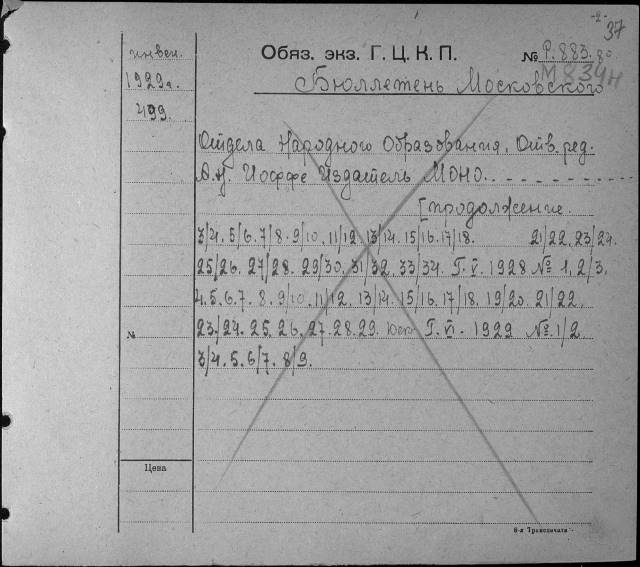 -2-
37
инвен.
1929г.
499.
Обяз. экз. Г. Ц. К. П.
№ Р.883.
М834н
Бюллетень Московского
Отдела Народного Образования. Отв. ред.
Иоффе Издатель МОНО.
[продолжение.
3/4. 5/6. 7/8. 9/10. 11/12. 13/14. 15/16. 17/18. 21/22. 23/24.
25/26. 27/28. 29/30. 31/32. 33/34. Г. V. 1928 № 1, 2/3,
4. 5. 6. 7. 8. 9/10. 11/12. 13/14. 15/16. 17/18. 19/20. 21/22.
23/24. 25. 26. 27. 28. 29. Г. VI. 1929 № 1/2
3/4. 5. 6/7. 8/9.
№
Цена
6-я Транспечати